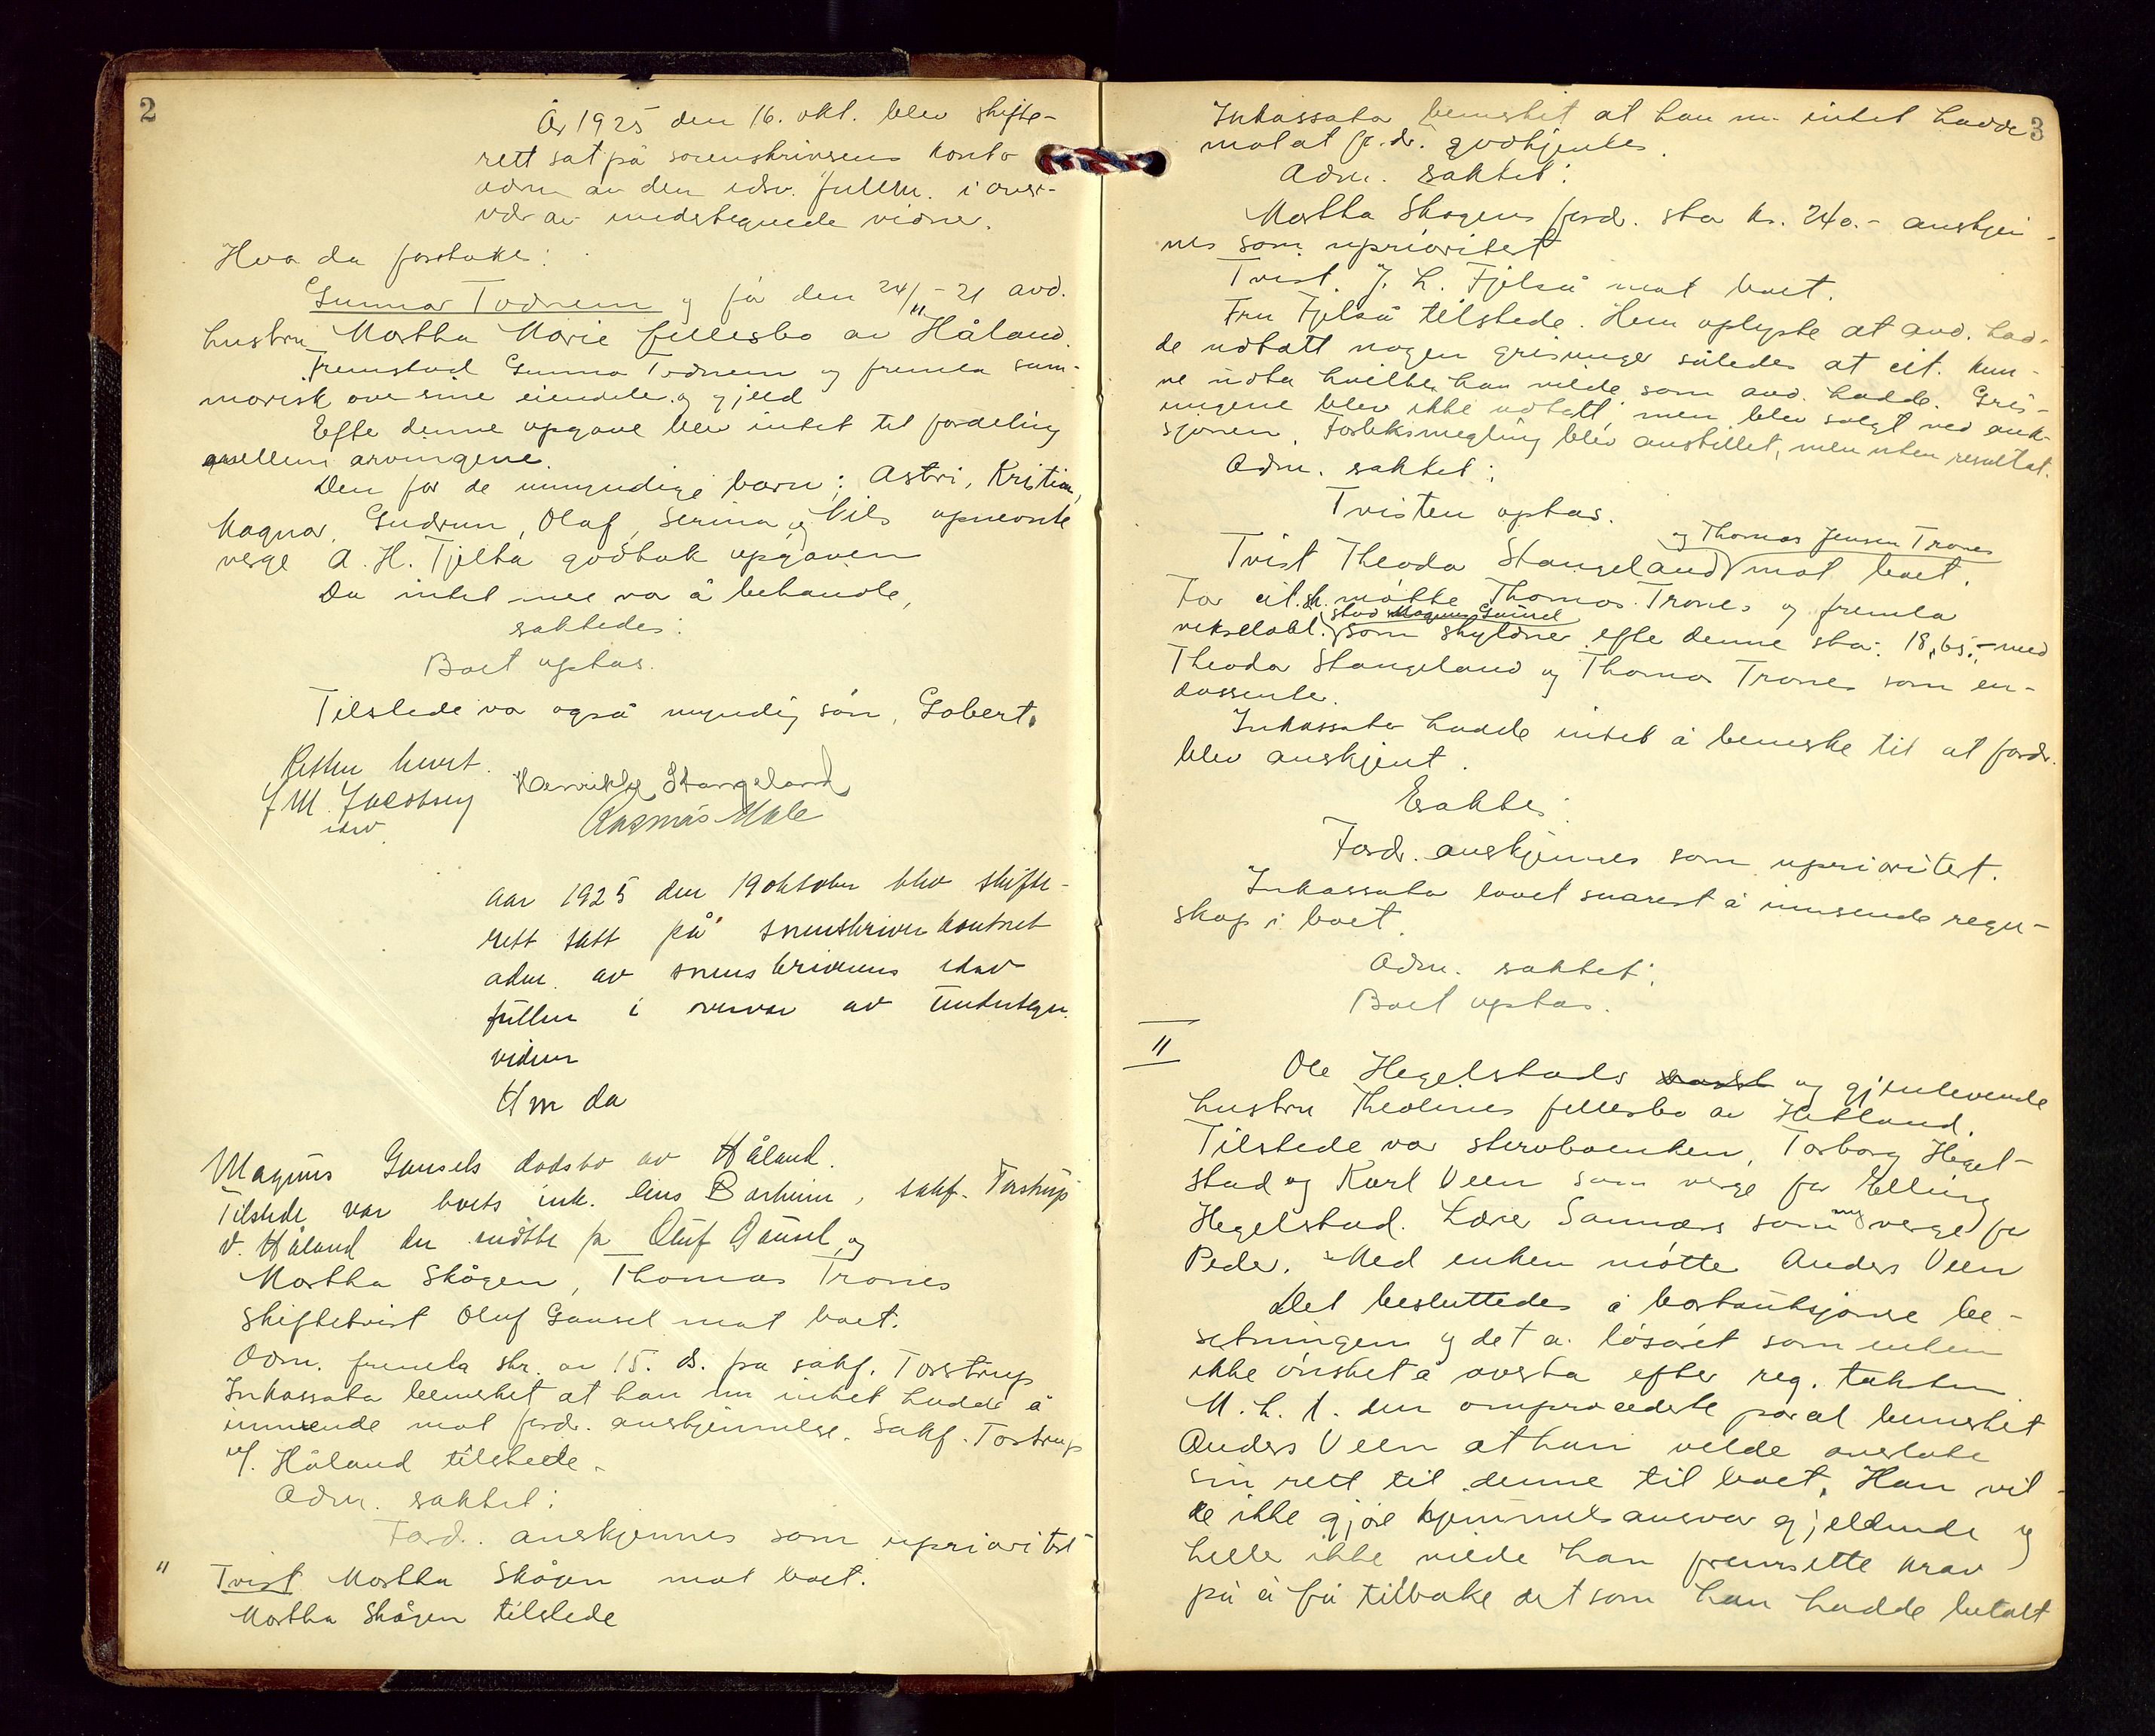 2
År 1925 den 16. okt. blev skifte-
rett sat på sorenskriverens kontor
adm av den edsv. fullm. i over-
vær av undertegnede vidner.
Hvor da foretokes:
Gunnar Todnem og før den 24/11-21 avd.
hustru Martha Marie fellesbo av Håland.
Fremstod Gunnar Todnem og fremla sum-
marisk over sine eiendele og gjeld
Efter denne opgave blev intet til fordeling
mellem arvingene.
Den for de umyndige barn: Astri, Kristian,
Magnar, Gudrun, Olaf, Serina og Nils opnevnte
verge A. H. Tjelta godtok opgaven
Da intet mer var å behandle,
saktedes:
Boet optas.
Tilstede var også myndig søn, Gobert.
Retten hevet.
J M Jacobsen
edsv.
Henrik Stangeland
Rasmus Male
Aar 1925 den 19 oktober blev skifte-
rett satt på sorenskriverkontoret
adm. av sorenskriverens edsv
fullm i overvær av undertegn.
vidner
Hvor da
Magnus Gausels dødsbo av Håland.
Tilstede var boets ink. lens Barheim, sakf. Torstrup
v. Håland der møtte for Oluf Gausel, og
Martha Skogen, Thomas Trones
Skiftetvist Oluf Gausel mot boet.
Adm. fremla skr. av 15. ds. fra sakf. Torstrup
Inkassator bemerket at han nu intet hadde å
innvende mot ford. anerkjennelse. Sakf. Torstrup
v/. Håland tilstede.
Adm. saktet:
Ford. anerkjennes som uprioritert
" Tvist Martha Skogen mot boet.
Martha Skogen tilstede
3
Inkassator bemerket at han nu intet hadde
mot at fr. dr. godkjentes.
Adm. saktet:
Martha Skogens ford. stor kr. 240.- anerkjen-
nes som uprioritert
Tvist. J. L. Fjelså mot boet.
Fru Fjelså tilstede. Hun oplyste at avd. had-
de udtatt nogen grisunger således at cit. kun-
ne udta hvilke han vilde som avd. hadde. Gris-
ungene blev ikke udtatt, men blev solgt ved auk-
sjonen. Forliksmegling blev anstillet, men uten resultat.
Adm. saktet:
Tvisten optas.
og Thomas Jensen Trones
Tvist Theodor Stangeland mot boet.
For cit. sk. møtte Thomas Trones og fremla
stod Magnus Gausel
vekselobl. som skyldner efter denne stor: 18,65.- med
Theodor Stangeland og Thomas Trones som en-
dossenter.
Inkassator hadde intet å bemerke til at fordr.
blev anerkjent.
Esaktes:
Fordr. anerkjennes som uprioritert.
Inkassator lovet snarest å innsende regn-
skap i boet.
Adm. saktet:
Boet optas.
II
Ole Hegelstads og gjenlevende
hustru Theolines fellesbo av Hetland.
Tilstede var stervboenken, Torborg Hegel-
stad og Karl Veen som verge for Elling
Hegelstad. Lærer Sannæs som ny verge for
Peder. Med enken møtte Anders Veen
Det besluttedes å bortauksjonere be-
setningen og det av løsøret som enken
ikke ønsket å overta efter reg. taksten.
M. h. t. den omprocederte parsel bemerket
Anders Veen at han vilde overlate
sin rett til denne til boet. Han vil-
de ikke gjøre hjemmelsansvar gjeldende og
heller ikke vilde han fremsette krav
på å få tilbake det som han hadde betalt